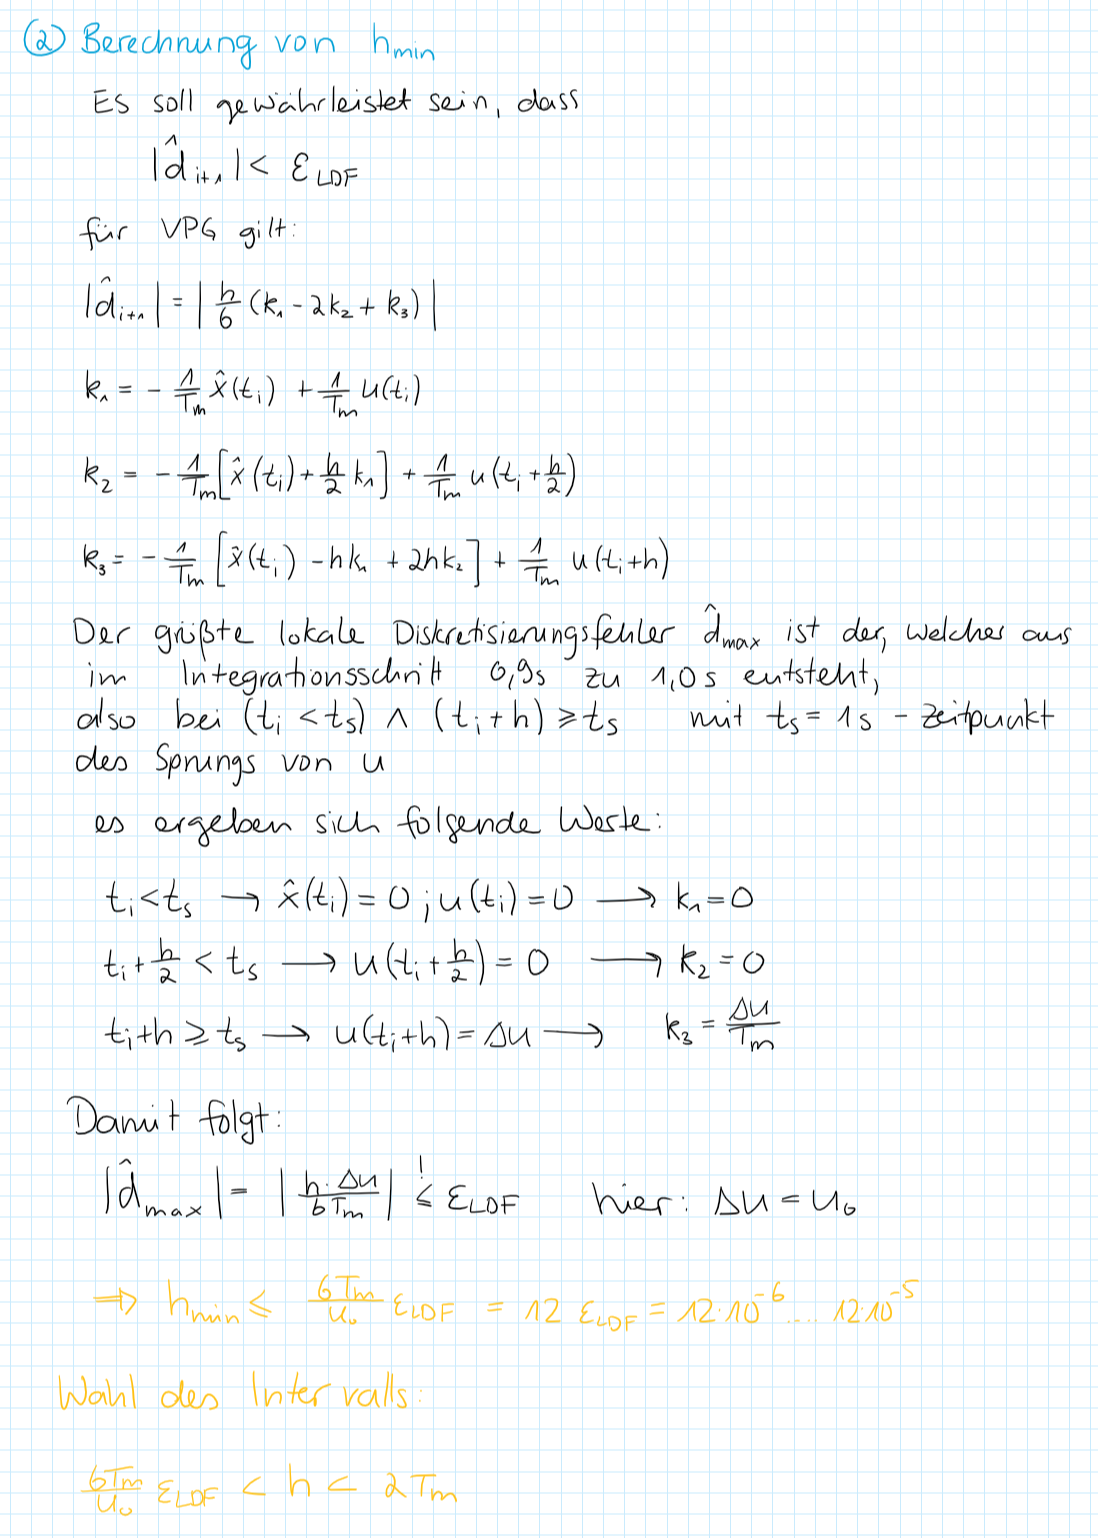 ② Berechnung von h_min
Es soll gewährleistet sein, dass
|d̂_{i+1}| < ε_LDF
für VPG gilt:
|d̂_{i+1}| = | h/6 (k_1 - 2k_2 + k_3) |
k_1 = - 1/T_m x̂(t_i) + 1/T_m u(t_i)
k_2 = - 1/T_m [x̂(t_i) + h/2 k_1] + 1/T_m u(t_i + h/2)
k_3 = - 1/T_m [x̂(t_i) - hk_1 + 2hk_2] + 1/T_m u(t_i+h)
Der größte lokale Diskretisierungsfehler d̂_max ist der, welcher aus
im Integrationsschritt 0,9s zu 1,0s entsteht,
also bei (t_i < t_s) ∧ (t_i + h) ≥ t_s mit t_s = 1s - Zeitpunkt
des Sprungs von u
es ergeben sich folgende Werte:
t_i < t_s → x̂(t_i) = 0 ; u(t_i) = 0 → k_1 = 0
t_i + h/2 < t_s → u(t_i + h/2) = 0 → k_2 = 0
t_i + h ≥ t_s → u(t_i+h) = Δu → k_3 = Δu/T_m
Damit folgt:
|d̂_max| = | h·Δu / 6T_m | ≤! ε_LDF hier: Δu = u_0
⇒ h_min ≤ 6T_m/u_0 ε_LDF = 12 ε_LDF = 12·10^-6 .... 12·10^-5
Wahl des Intervalls:
6T_m/u_0 ε_LDF < h < 2T_m